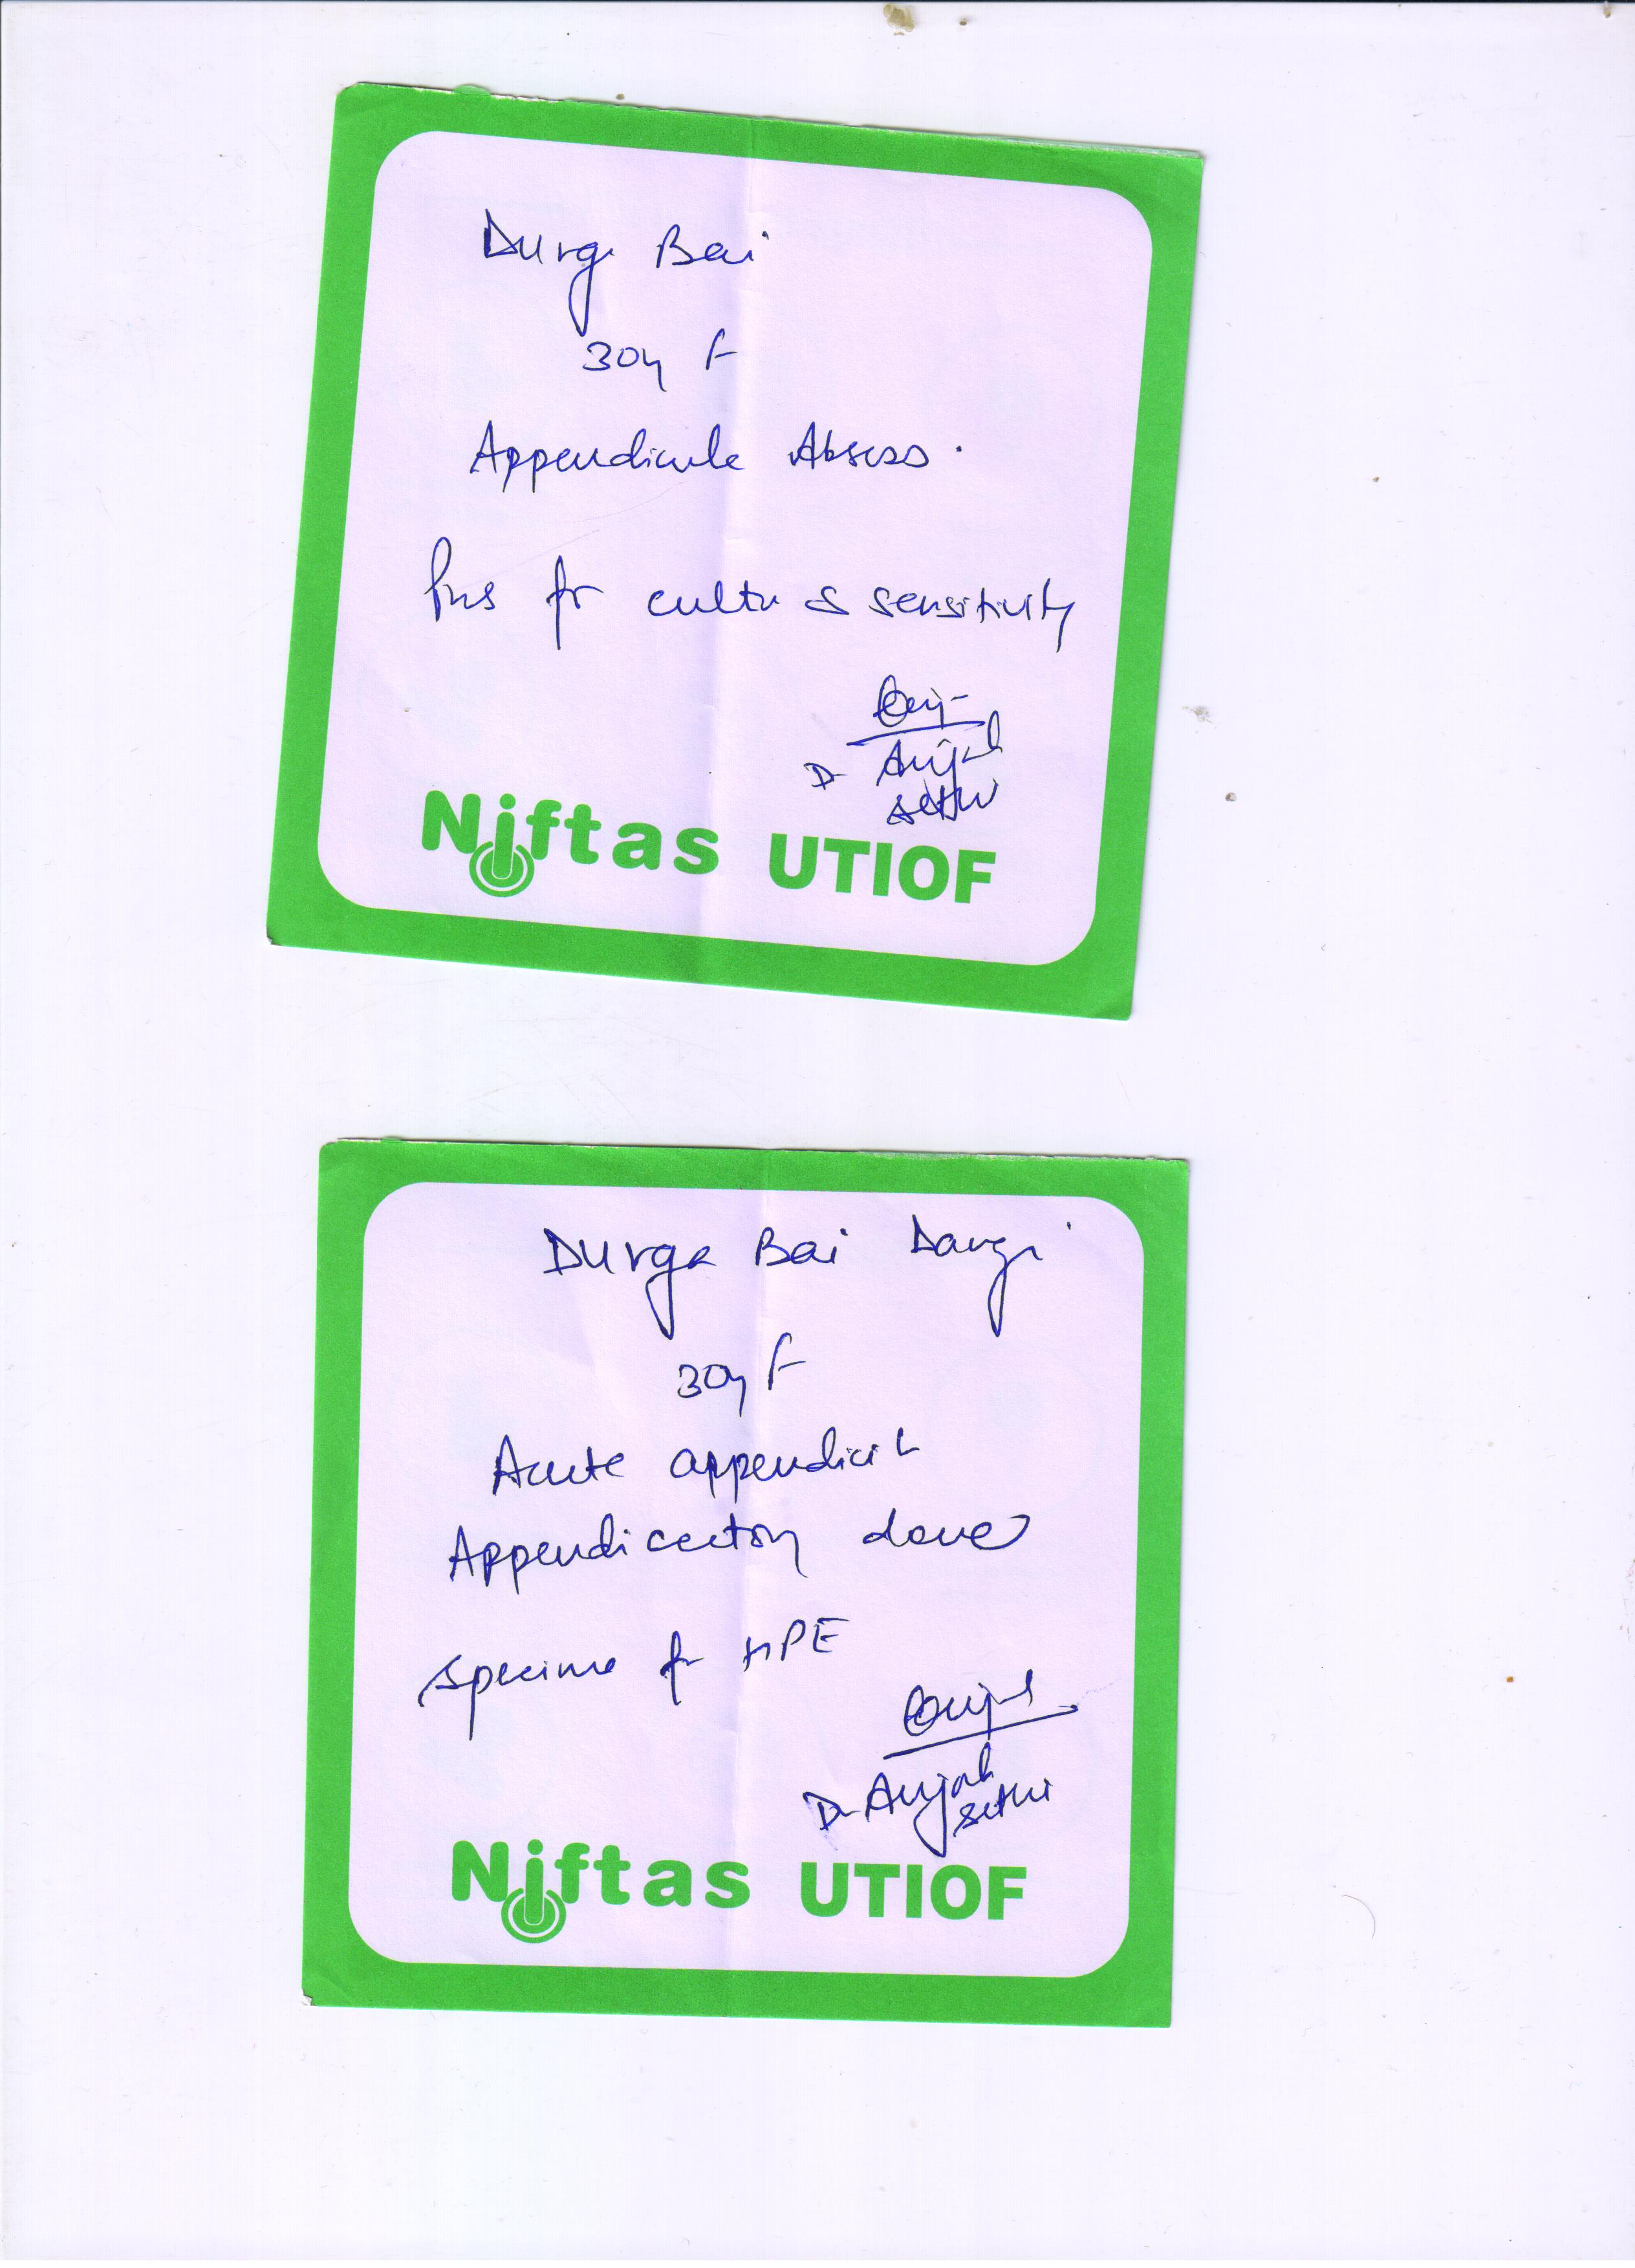 Durga Bai
30y F
Appendicule Absess.
Pus for cultu & sensitivity
Dr Anjal
sethi
Niftas UTIOF
Durga Bai Dangi
30y F
Acute appendicit
Appendicectomy done
specime for HPE
Dr Anjali
sethi
Niftas UTIOF